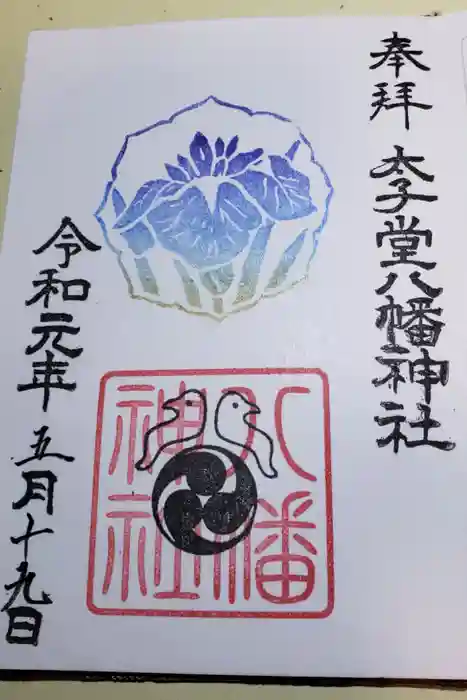 奉拝
太子堂八幡神社
八幡
神社
令和元年五月十九日